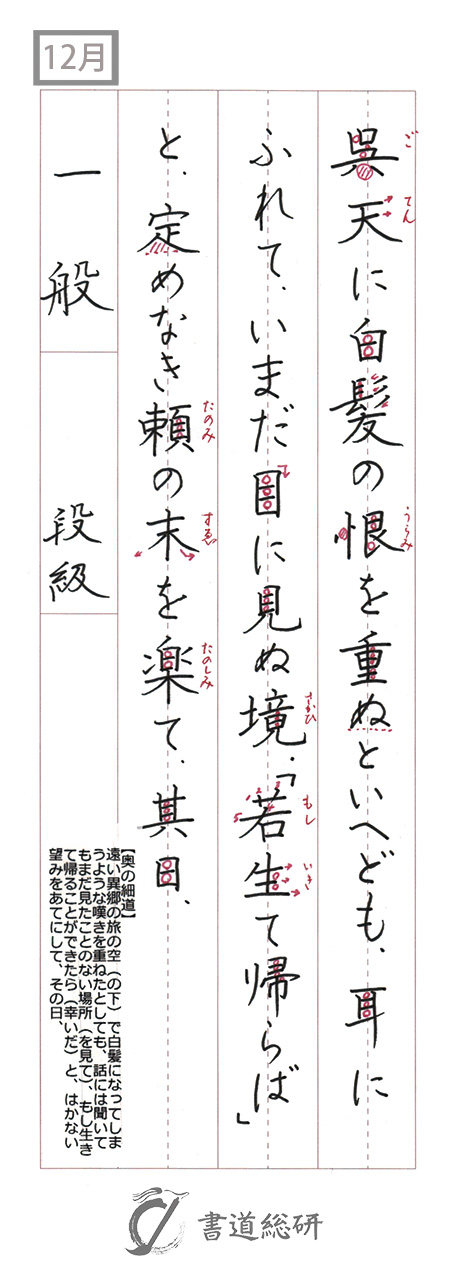 12月
呉天に白髪の恨を重ぬといへども、耳に
ご
てん
うらみ
ふれて、いまだ目に見ぬ境、「若生て帰らば」
さかひ
もし
いき
と、定めなき頼の末を楽て、其日、
たのみ
すゑ
たのしみ
一般
段級
【奥の細道】
遠い異郷の旅の空（の下）で白髪になってしま
うような嘆きを重ねたとしても、話には聞いて
もまだ見たことのない場所（を見て）、もし生き
て帰ることができたら（幸いだ）と、はかない
望みをあてにして、その日、
書道総研